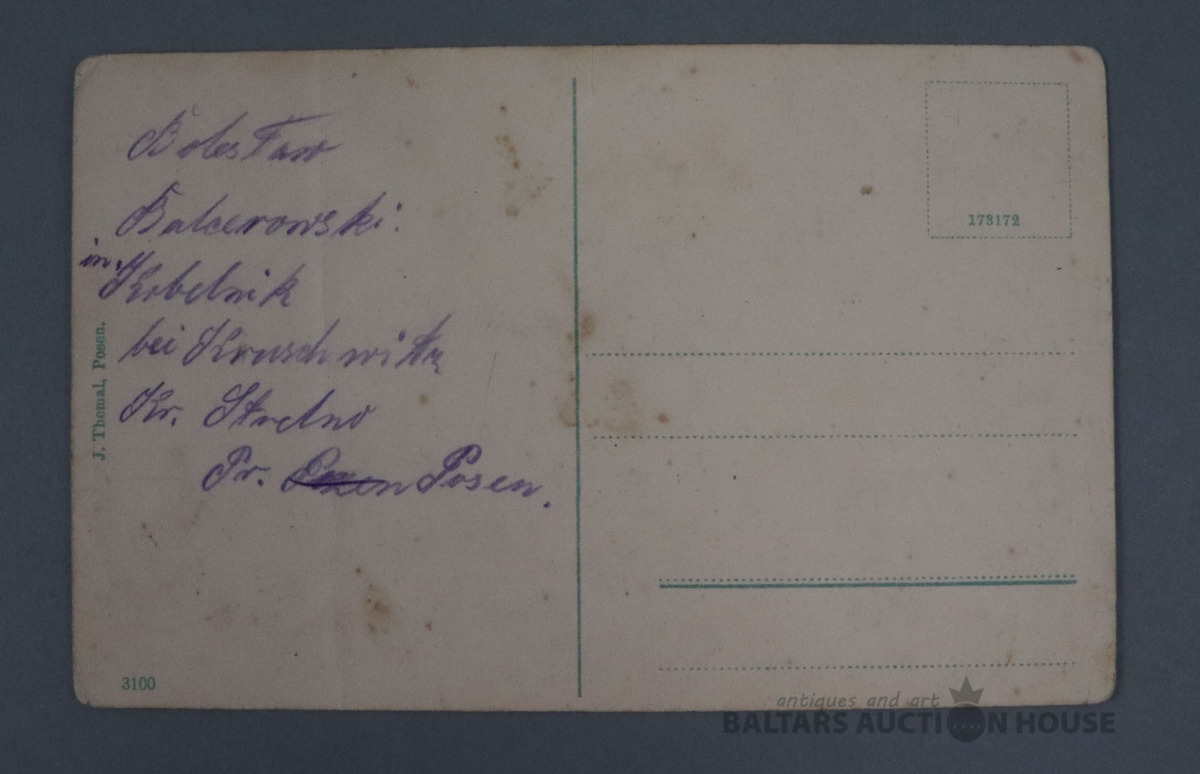 Bolesław
Balcerowski.
in Kobelnik
bei Kruschwitz
Kr. Strelno
Pr. Posen.
J. Themal, Posen.
3100
173172
antiques and art
BALTARS AUCTION HOUSE